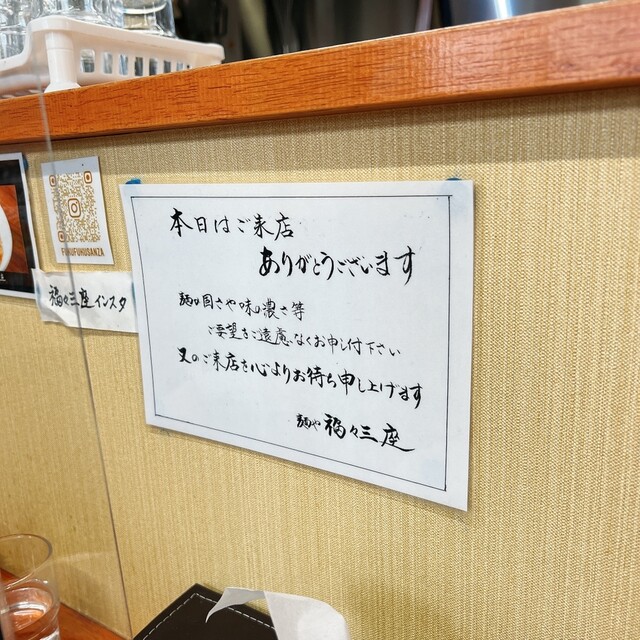 FUKUFUKUSANZA
福々三座インスタ
本日はご来店
ありがとうございます
麺の固さや味の濃さ等
ご要望をご遠慮なくお申し付下さい
又のご来店を心よりお待ち申し上げます
麺や 福々三座